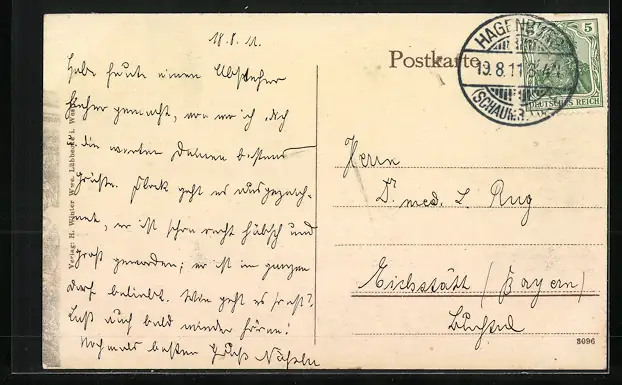 18.8.11.
Habe heute einen Abstecher
hieher gemacht, von wo ich dich
die werten Deinen bestens
grüße. Flock geht es ausgezeich-
net, er ist schon recht hübsch und
groß geworden; er ist im ganzen
Dorf beliebt. Wie geht es sonst?
Laß auch bald wieder hören!
Nochmals besten Gruß
Verlag: H. Winter Wwe. Lübbecke i. W.
Postkarte
HAGENBURG
19.8.11
(SCHAUMB.
5
DEUTSCHES REICH
Herrn
Dr med. L. Rug
Eichstätt (Bayern)
3096